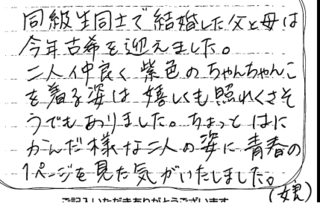 同級生同士で結婚した父と母は
今年古希を迎えました。
二人仲良く紫色のちゃんちゃんこ
を着る姿は嬉しくも照れくさそ
うでもありました。ちょっとはに
かんだ様な二人の姿に青春の
1ページを見た気がいたしました。
ご記入いただきありがとうございます